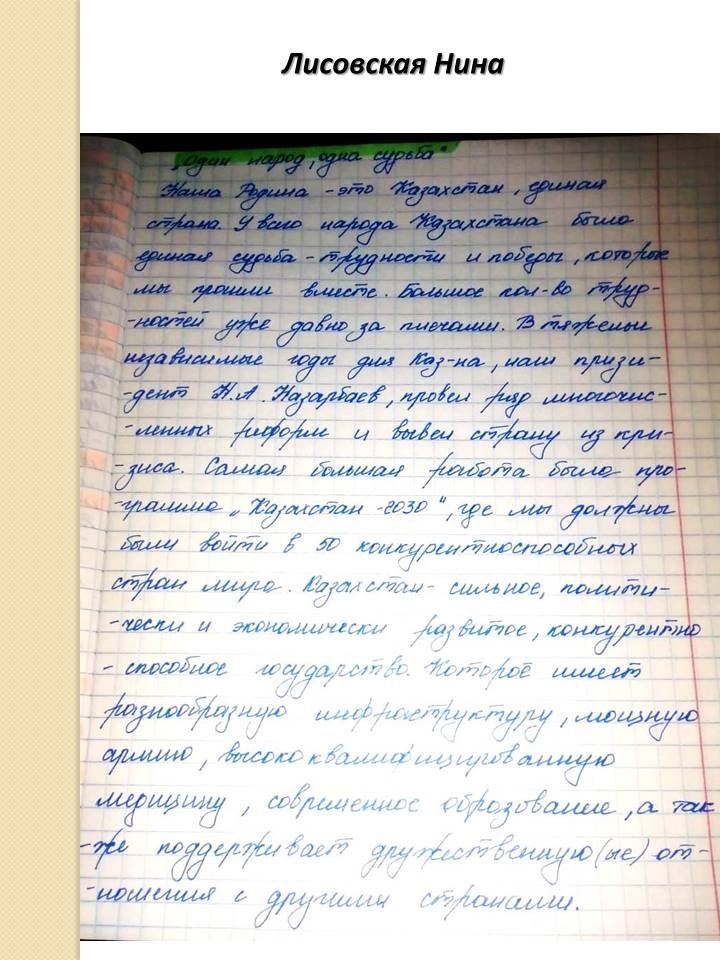 Лисовская Нина
„Один народ, одна судьба"
Наша Родина - это Казахстан, единая
страна. У всего народа Казахстана была
единая судьба - трудности и победы, которые
мы прошли вместе. Большое кол-во труд-
-ностей уже давно за плечами. В тяжелые
независимые годы для Каз-на, наш прези-
-дент Н.А. Назарбаев, провел ряд многочис-
-ленных реформ и вывел страну из кри-
-зиса. Самая большая работа была про-
-грамма „Казахстан -2030", где мы должны
были войти в 50 конкурентноспособных
стран мира. Казахстан- сильное, полити-
-чески и экономически развитое, конкурентно
- способное государство. Которое имеет
разнообразную инфраструктуру, мощную
армию, высоко квалифицированную
медицину, современное образование, а так
-же поддерживает дружественную(ые) от-
-ношения с другими странами.